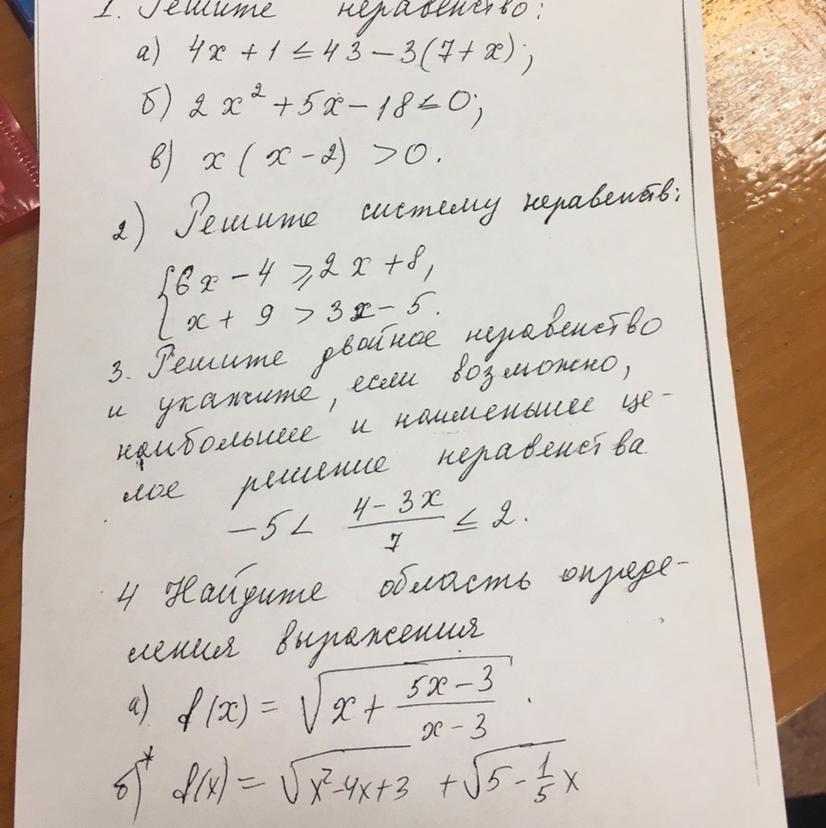 1. Решите неравенство:
а) 4x + 1 ≤ 43 − 3(7 + x);
б) 2x² + 5x − 18 ≤ 0;
в) x(x − 2) > 0.
2) Решите систему неравенств:
{6x − 4 ≥ 2x + 8,
x + 9 > 3x − 5.
3. Решите двойное неравенство
и укажите, если возможно,
наибольшее и наименьшее це-
лое решение неравенства
−5 < (4 − 3x)/7 ≤ 2.
4 Найдите область опреде-
ления выражения
а) f(x) = √(x + (5x − 3)/(x − 3)).
б)* f(x) = √(x² − 4x + 3) + √(5 − 1/5 x)